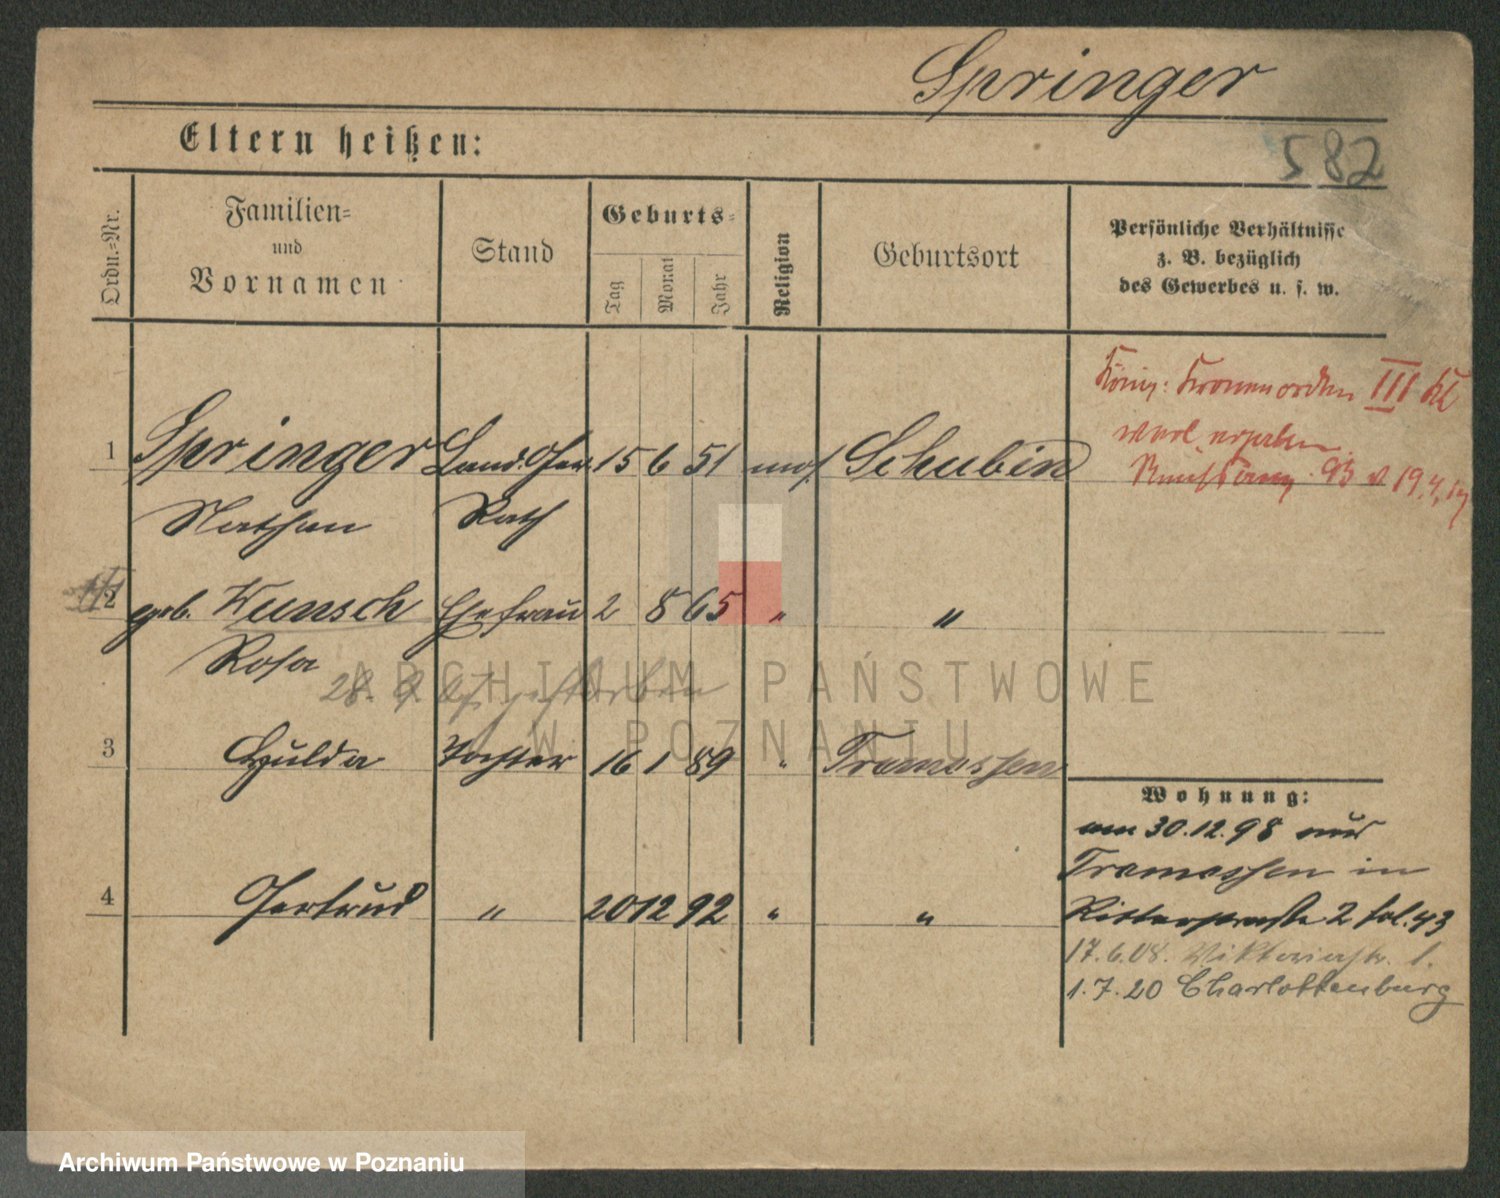 Springer
Eltern heißen:
582
Ordn.=Nr.
Familien=
und
Vornamen
Stand
Geburts=
Tag
Monat
Jahr
Religion
Geburtsort
Persönliche Verhältnisse
z. B. bezüglich
des Gewerbes u. s. w.
König: Kronenorden III Kl
1 Springer 15 6 51 mos. Schubin
Nathan Rath
2 geb. Wunsch Ehefrau 2 8 65 " "
Rosa
28. gestorben
3 Hulda Tochter 16 1 89 " Tremessen
4 Gertrud " 20 12 92 " "
Wohnung:
am 30.12.98 aus
Tremessen in
Ritterstraße 2 fol. 43
17.6.08. Viktoriastr. 1.
1.7.20 Charlottenburg
ARCHIWUM PAŃSTWOWE
W POZNANIU
Archiwum Państwowe w Poznaniu